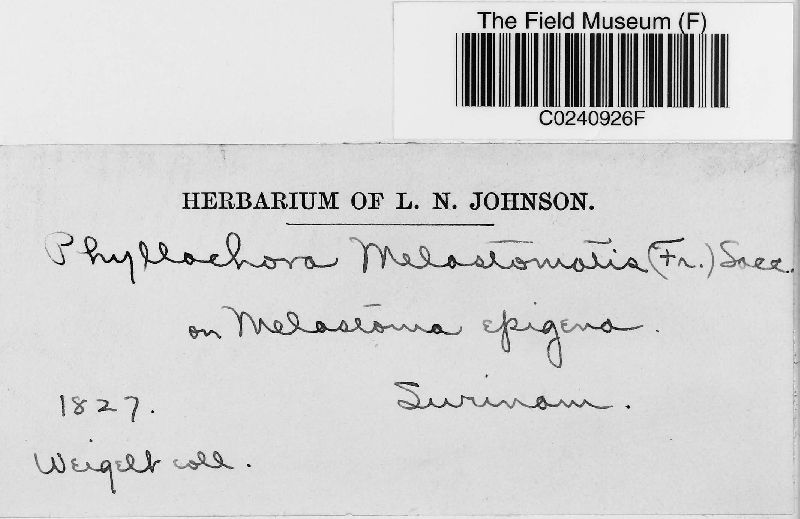 The Field Museum (F)
C0240926F
HERBARIUM OF L. N. JOHNSON.
Phyllachora Melastomatis (Fr.) Sacc.
on Melastoma epigena.
1827. Surinam.
Weigelt coll.